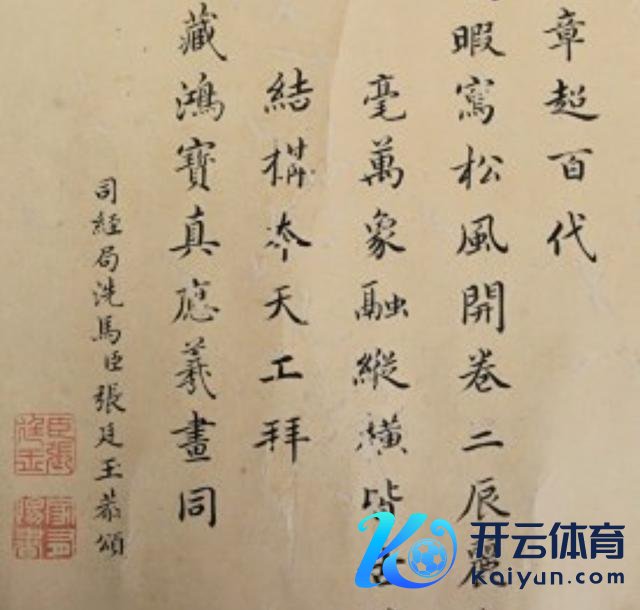 章超百代
暇寫松風開卷二辰麗
毫萬象融縱橫皆
結構夲天工拜
藏鴻寶真應羲畫同
司經局洗馬臣張廷玉恭頌
臣張廷玉
开云体育
Kaiyun.com